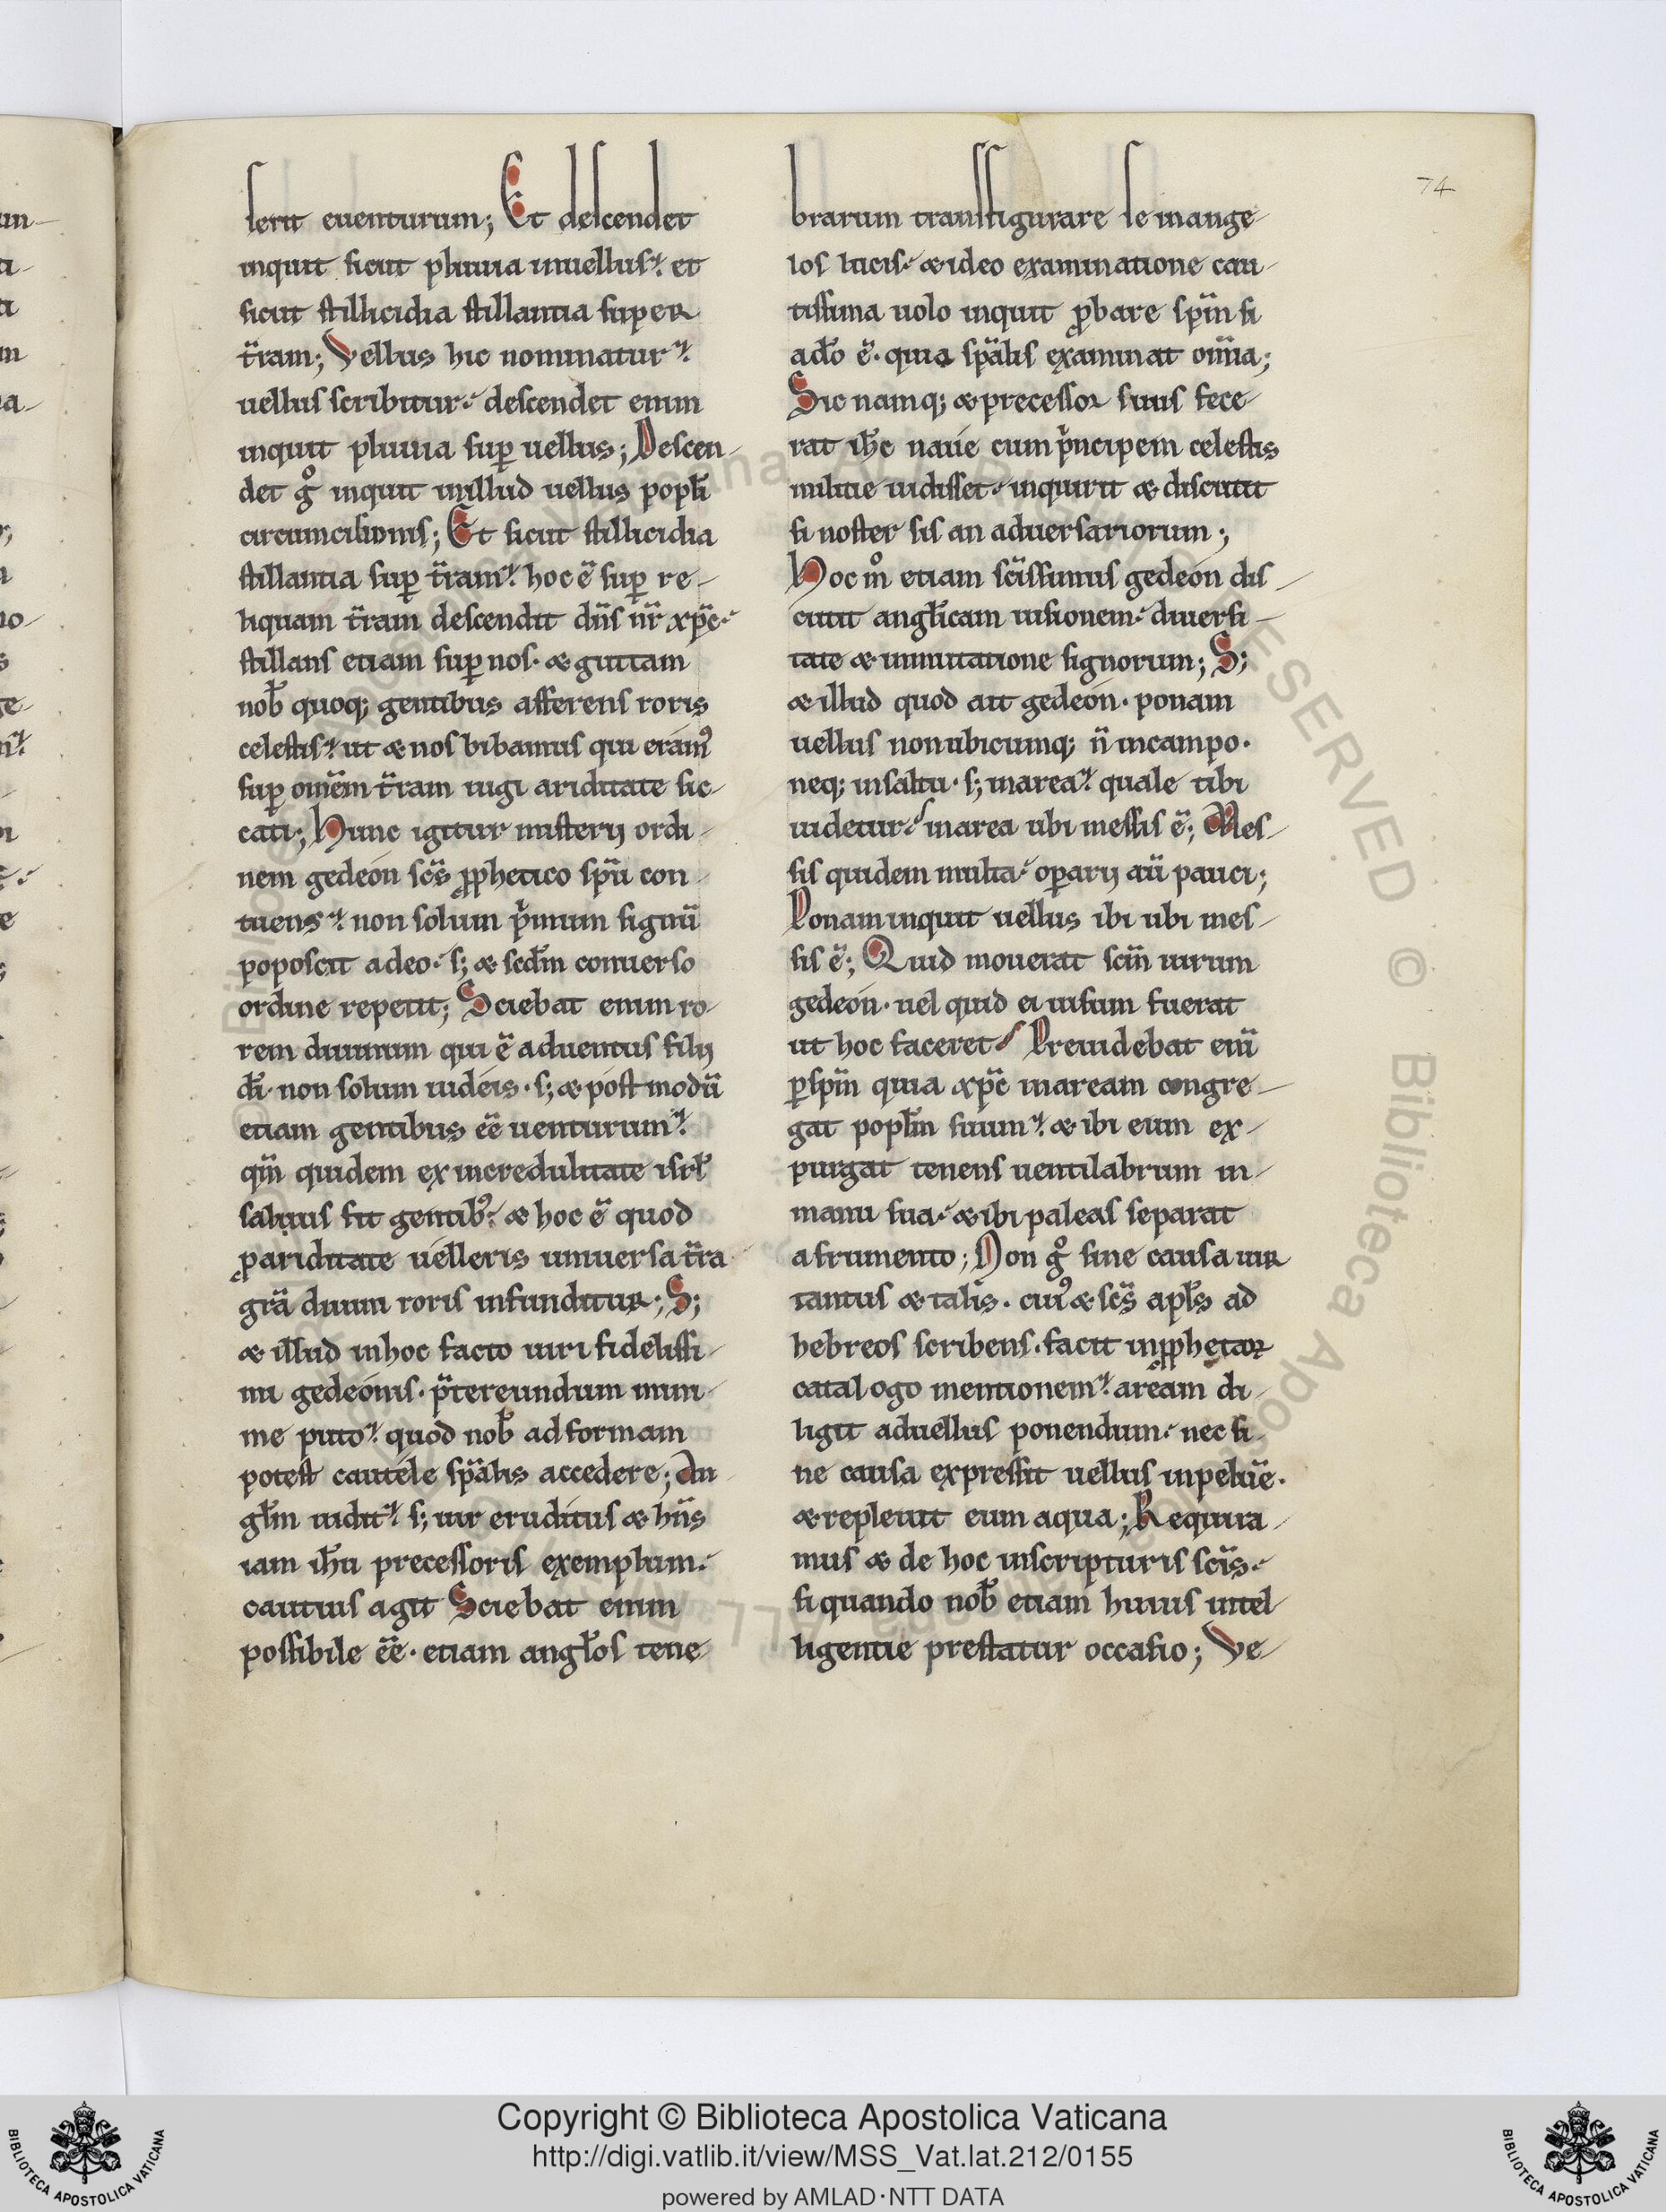 74
serit euenturum; Et descendet
inquit sicut pluuia inuellus. et
sicut stillicidia stillantia super
t̄ram; Vellus hic nominatur.
uellus scribitur. descendet enim
inquit pluuia suꝑ uellus; Descen-
det g̊ inquit inillud uellus popl̄i
circumcisionis; Et sicut stillicidia
stillantia suꝑ t̄ram. hoc ē suꝑ re-
liquam t̄ram descendit dn̄s nr̄ xp̄c.
stillans etiam suꝑ nos. & guttam
nob̄ quoq; gentibus afferens roris
celestis. ut & nos bibamus qui eram᾿
suꝑ omēm t̄ram iugi ariditate sic-
cati; Hunc igitur misterij ordi-
nem gedeón sc̄s ꝓphetico sp̄u con-
tuens. non solum p̄mum signū
poposcit adeo. s; & scd̄m conuerso
ordine repetit; Sciebat enim ro-
rem diuinum qui ē aduentus filij
dī. non solum iudéis. s; & post modū
etiam gentibus eē uenturum.
qm̄ quidem ex incredulitate isrl̄
salus fit gentib᾿. & hoc ē quod
p ariditate uelleris uniuersa t̄ra
grā diuini roris infunditur; S;
& illud inhoc facto uiri fidelissi-
mi gedeónis. p̄tereundum mini-
me puto. quod nob̄ adformam
potest cautéle sp̄alis accedere; An-
gl̄m uidit. s; uir eruditus & hn̄s
iam ih̄u precessoris exemplum.
cautius agit Sciebat enim
possibile eē. etiam angl̄os tene-
brarum transfigurare se inange-
los lucis. & ideo examinatione cau-
tissima uolo inquit ꝓbare sp̄m si
ad̄o ē. quia sp̄alis examinat om̄ia;
Sic namq; & precessor suus fece-
rat ih̄c naúe cum p̄ncipem celestis
militie uidisset. inquirit & discutit
si noster sis an aduersariorum;
Hoc m̊ etiam sc̄issimus gedeón dis-
cutit angl̄icam uisionem. diuersi-
tate & inmutatione signorum; S;
& illud quod ait gedeón. ponam
uellus nonubicumq; n̄ incampo.
neq; insaltu. s; inarea. quale tibi
uidetur. inarea ubi messis ē; Mes-
sis quidem multa. oꝑarij aū pauci;
Ponam inquit uellus ibi ubi mes-
sis ē; Quid mouerat scm̄ uirum
gedeón. uel quid ei uisum fuerat
ut hoc faceret Preuidebat enī
ꝑ sp̄m quia xp̄c inaream congre-
gat popl̄m suum. & ibi eum ex-
purgat tenens uentilabrum in-
manu sua. & ibi paleas separat
a frumento; Non g̊ sine causa uir
tantus & talis. cui᾿ & sc̄s apl̄s ad
hebreos scribens. facit inꝓphetaꝝ
catalogo mentionem. aream di-
ligit aduellus ponendum. nec si-
ne causa expressit uellus inpelūe.
& repleuit eum aqua; Requira-
mus & de hoc inscripturis scīs.
si quando nob̄ etiam huius intel-
ligentie prestatur occasio; Ve-
© Biblioteca Apostolica Vaticana ALL RIGHTS RESERVED
Copyright © Biblioteca Apostolica Vaticana
http://digi.vatlib.it/view/MSS_Vat.lat.212/0155
powered by AMLAD·NTT DATA
BIBLIOTECA APOSTOLICA VATICANA
BIBLIOTECA APOSTOLICA VATICANA